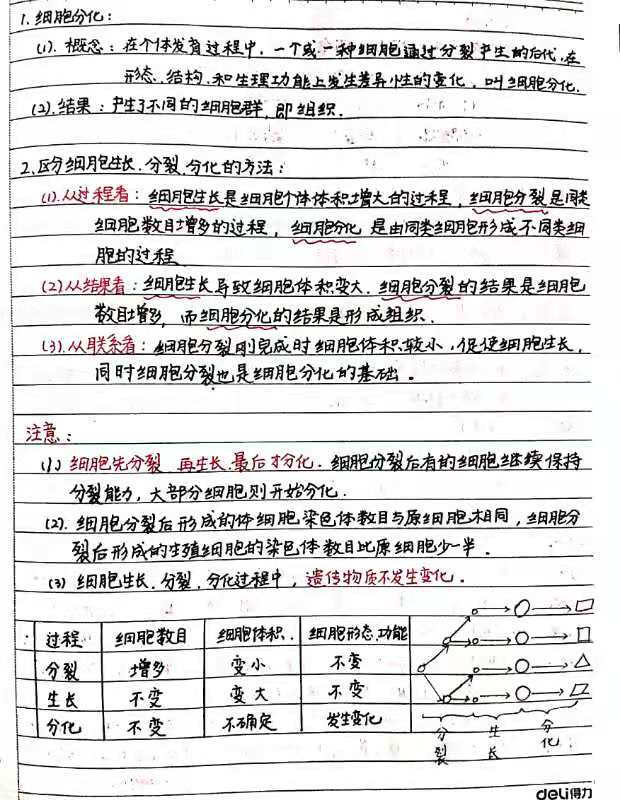 1. 细胞分化:
(1). 概念: 在个体发育过程中, 一个或一种细胞通过分裂产生的后代, 在
形态. 结构. 和生理功能上发生差异性的变化, 叫细胞分化.
(2). 结果: 产生了不同的细胞群, 即组织.
2. 区分细胞生长. 分裂. 分化的方法:
(1). 从过程看: 细胞生长是细胞个体体积增大的过程, 细胞分裂是同类
细胞数目增多的过程, 细胞分化 是由同类细胞形成不同类细
胞的过程
(2) 从结果看: 细胞生长导致细胞体积变大. 细胞分裂的结果是细胞
数目增多, 而细胞分化的结果是形成组织.
(3). 从联系看: 细胞分裂刚完成时细胞体积较小, 促使细胞生长,
同时细胞分裂也是细胞分化的基础。
注意:
(1) 细胞先分裂 再生长. 最后才分化. 细胞分裂后有的细胞继续保持
分裂能力, 大部分细胞则开始分化.
(2). 细胞分裂后形成的体细胞染色体数目与原细胞相同, 细胞分
裂后形成的生殖细胞的染色体数目比原细胞少一半.
(3) 细胞生长. 分裂. 分化过程中, 遗传物质不发生变化.
过程 细胞数目 细胞体积. 细胞形态. 功能
分裂 增多 变小 不变
生长 不变 变大 不变
分化 不变 不确定 发生变化
分裂 生长 分化
deli得力